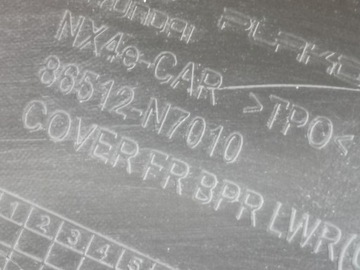 HYUNDAI PLAKO
NX4e-CAR
86512-N7010 >TPO<
COVER FR BPR LWR(
1 2 3 4 5